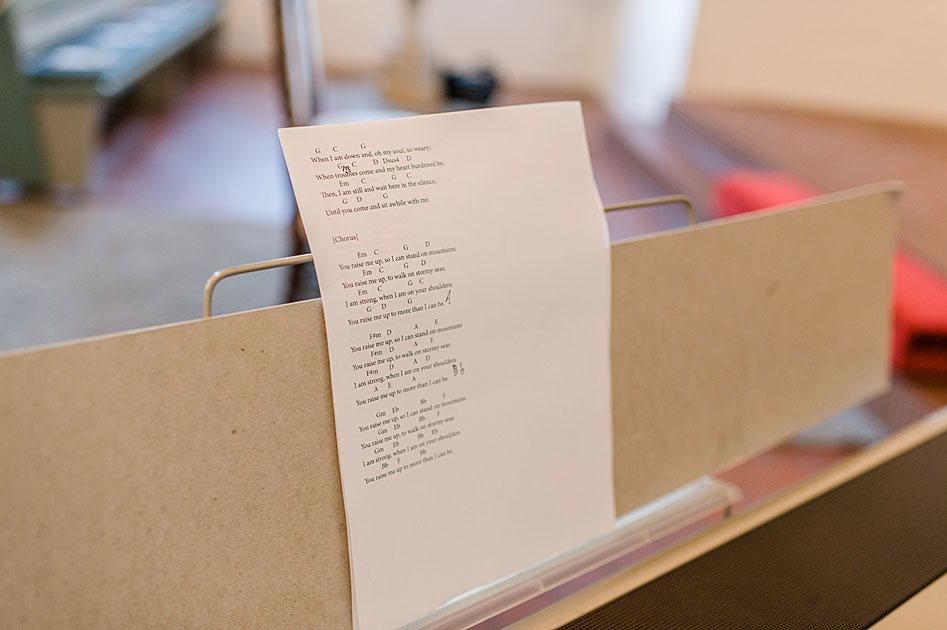 G C G
When I am down and, oh my soul, so weary;
G C D Dsus4 D
When troubles come and my heart burdened be;
Em C G C
Then, I am still and wait here in the silence,
G D G
Until you come and sit awhile with me.
[Chorus]
Em C G D
You raise me up, so I can stand on mountains;
Em C G D
You raise me up, to walk on stormy seas;
Em C G C
I am strong, when I am on your shoulders;
G D G
You raise me up to more than I can be. A
F#m D A E
You raise me up, so I can stand on mountains
F#m D A E
You raise me up, to walk on stormy seas
F#m D A D
I am strong, when I am on your shoulders
A E A
You raise me up to more than I can be. Bb
Gm Eb Bb F
You raise me up, so I can stand on mountains
Gm Eb Bb F
You raise me up, to walk on stormy seas
Gm Eb Bb Eb
I am strong, when I am on your shoulders
Bb F Bb
You raise me up to more than I can be.